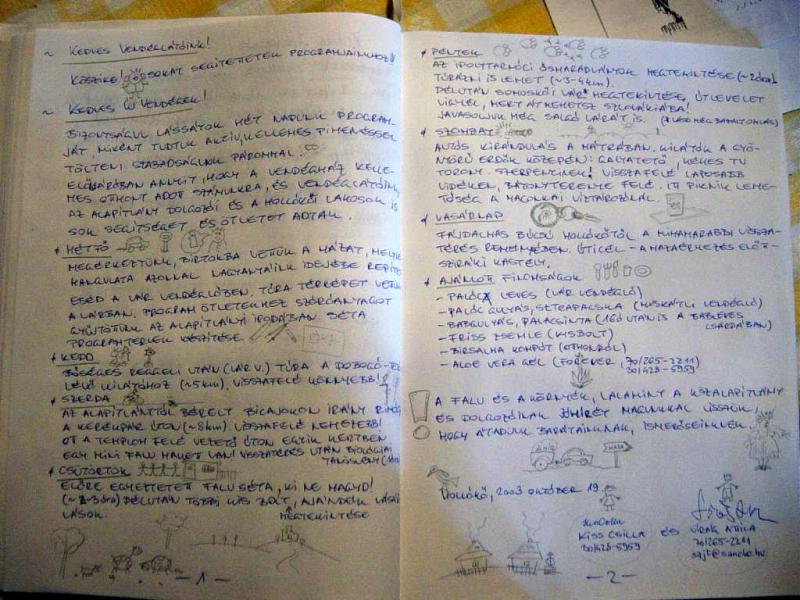 ~ KEDVES VENDÉGLÁTÓINK!
KÖSZI! SOKAT SEGÍTETTETEK PROGRAMJAINKHOZ!
~ KEDVES ÚJ VENDÉGEK!
BIZONYSÁGUL LÁSSÁTOK HÉT NAPUNK PROGRAM-
JÁT, MIKÉNT TUDTUK AKTÍV, KELLEMES PIHENÉSSEL
TÖLTENI SZABADSÁGUNK PÁROMMAL.
ELÖLJÁRÓBAN ANNYIT, HOGY A VENDÉGHÁZ KELLE-
MES OTTHONT ADOTT SZÁMUNKRA, ÉS VENDÉGLÁTÓINK,
AZ ALAPÍTVÁNY DOLGOZÓI ÉS A HOLLÓKŐI LAKOSOK IS
SOK SEGÍTSÉGET ÉS ÖTLETET ADTAK.
* HÉTFŐ
MEGÉRKEZTÜNK, BIRTOKBA VETTÜK A HÁZAT,
HANGULATA AZONNAL NAGYANYÁINK IDEJÉBE REPÍT
EBÉD A VÁR VENDÉGLŐBEN, TÚRA TÉRKÉPET VETT
A VÁRBAN. PROGRAM ÖTLETEKHEZ SZÓRÓANYAGOT
GYŰJTÖTTÜNK AZ ALAPÍTVÁNYI IRODÁBAN SÉTA.
PROGRAMTERVEK KÉSZÍTÉSE.
* KEDD
BŐSÉGES REGGELI UTÁN (VÁR V.) TÚRA A DOBOGÓ-
KILÁTÓHOZ (~5km), VISSZAFELÉ KÖNNYEBB!
* SZERDA
AZ ALAPÍTVÁNYTÓL BÉRELT BICAJOKON IRÁNY
A KERÉKPÁR ÚTON (~8km). VISSZAFELÉ NEHEZEBB!
OTT A TEMPLOM FELÉ VEZETŐ ÚTON EGYIK KERTBEN
EGY MINI FALU MAKETT VAN! VISSZATÉRÉS UTÁN BIOLÓGIAI
TANÖSVÉNY
* CSÜTÖRTÖK
ELŐRE EGYEZTETETT FALUSÉTA, KI NE HAGYD!
(~2-3óra) DÉLUTÁN TÖBBI KIS BOLT, AJÁNDÉK VÁSÁR
LÁSOK. MEGTEKINTÉSE
- 1 -
* PÉNTEK
AZ IPOLYTARNÓCI ŐSMARADVÁNYOK MEGTEKINTÉSE (~2óra)
TÚRÁZNI IS LEHET (~3-4km).
DÉLUTÁN SOMOSKŐI VÁR MEGTEKINTÉSE, ÚTLEVELET
VIGYÉL, MERT ÁTMEHETSZ SZLOVÁKIÁBA!
JAVASOLJUK MÉG SALGÓ VÁRÁT IS.
* SZOMBAT
AUTÓS KIRÁNDULÁS A MÁTRÁBAN. KILÁTÓK A GYÖ-
NYÖRŰ ERDŐK KÖZEPÉN: GALYATETŐ, KÉKES TV
TORONY. SZERPENTINEK! VISSZAFELÉ LAPOSABB
VIDÉKEN, BÁTONYTERENYE FELÉ. ITT PIKNIK LEHE-
TŐSÉG A MACONKAI VÍZTÁROZÓNÁL.
* VASÁRNAP
FÁJDALMAS BÚCSÚ HOLLÓKŐTŐL A MIHAMARABBI VISSZA-
TÉRÉS REMÉNYÉBEN. ÚTICÉL - A HAZAÉRKEZÉS ELŐTT-
SZIRÁKI KASTÉLY.
* AJÁNLOTT FINOMSÁGOK
- PALÓC LEVES (VÁR VENDÉGLŐ)
- PALÓC GULYÁS, SZTRAPACSKA (MUSKÁTLI VENDÉGLŐ)
- BABGULYÁS, PALACSINTA (16ó UTÁN IS A BABLEVES
CSÁRDÁBAN)
- FRISS ZSEMLE (KISBOLT)
- BIRSALMA KOMPÓT (OTTHONRÓL)
- ALOE VERA GÉL (FOREVER, 70/265-2211
30/428-5959
! A FALU ÉS A KÖRNYÉK, VALAMINT A KÖZALAPÍTVÁNY
ÉS DOLGOZÓINAK JÓHÍRÉT MAGUNKKAL VISSZÜK,
HOGY ÁTADJUK BARÁTAINKNAK, ISMERŐSEINKNEK.
HAZA
HOLLÓKŐ, 2003 OKTÓBER 19.
KISS CSILLA ÉS VIRÁK ATTILA
30/428-5959 70/265-2211
- 2 -